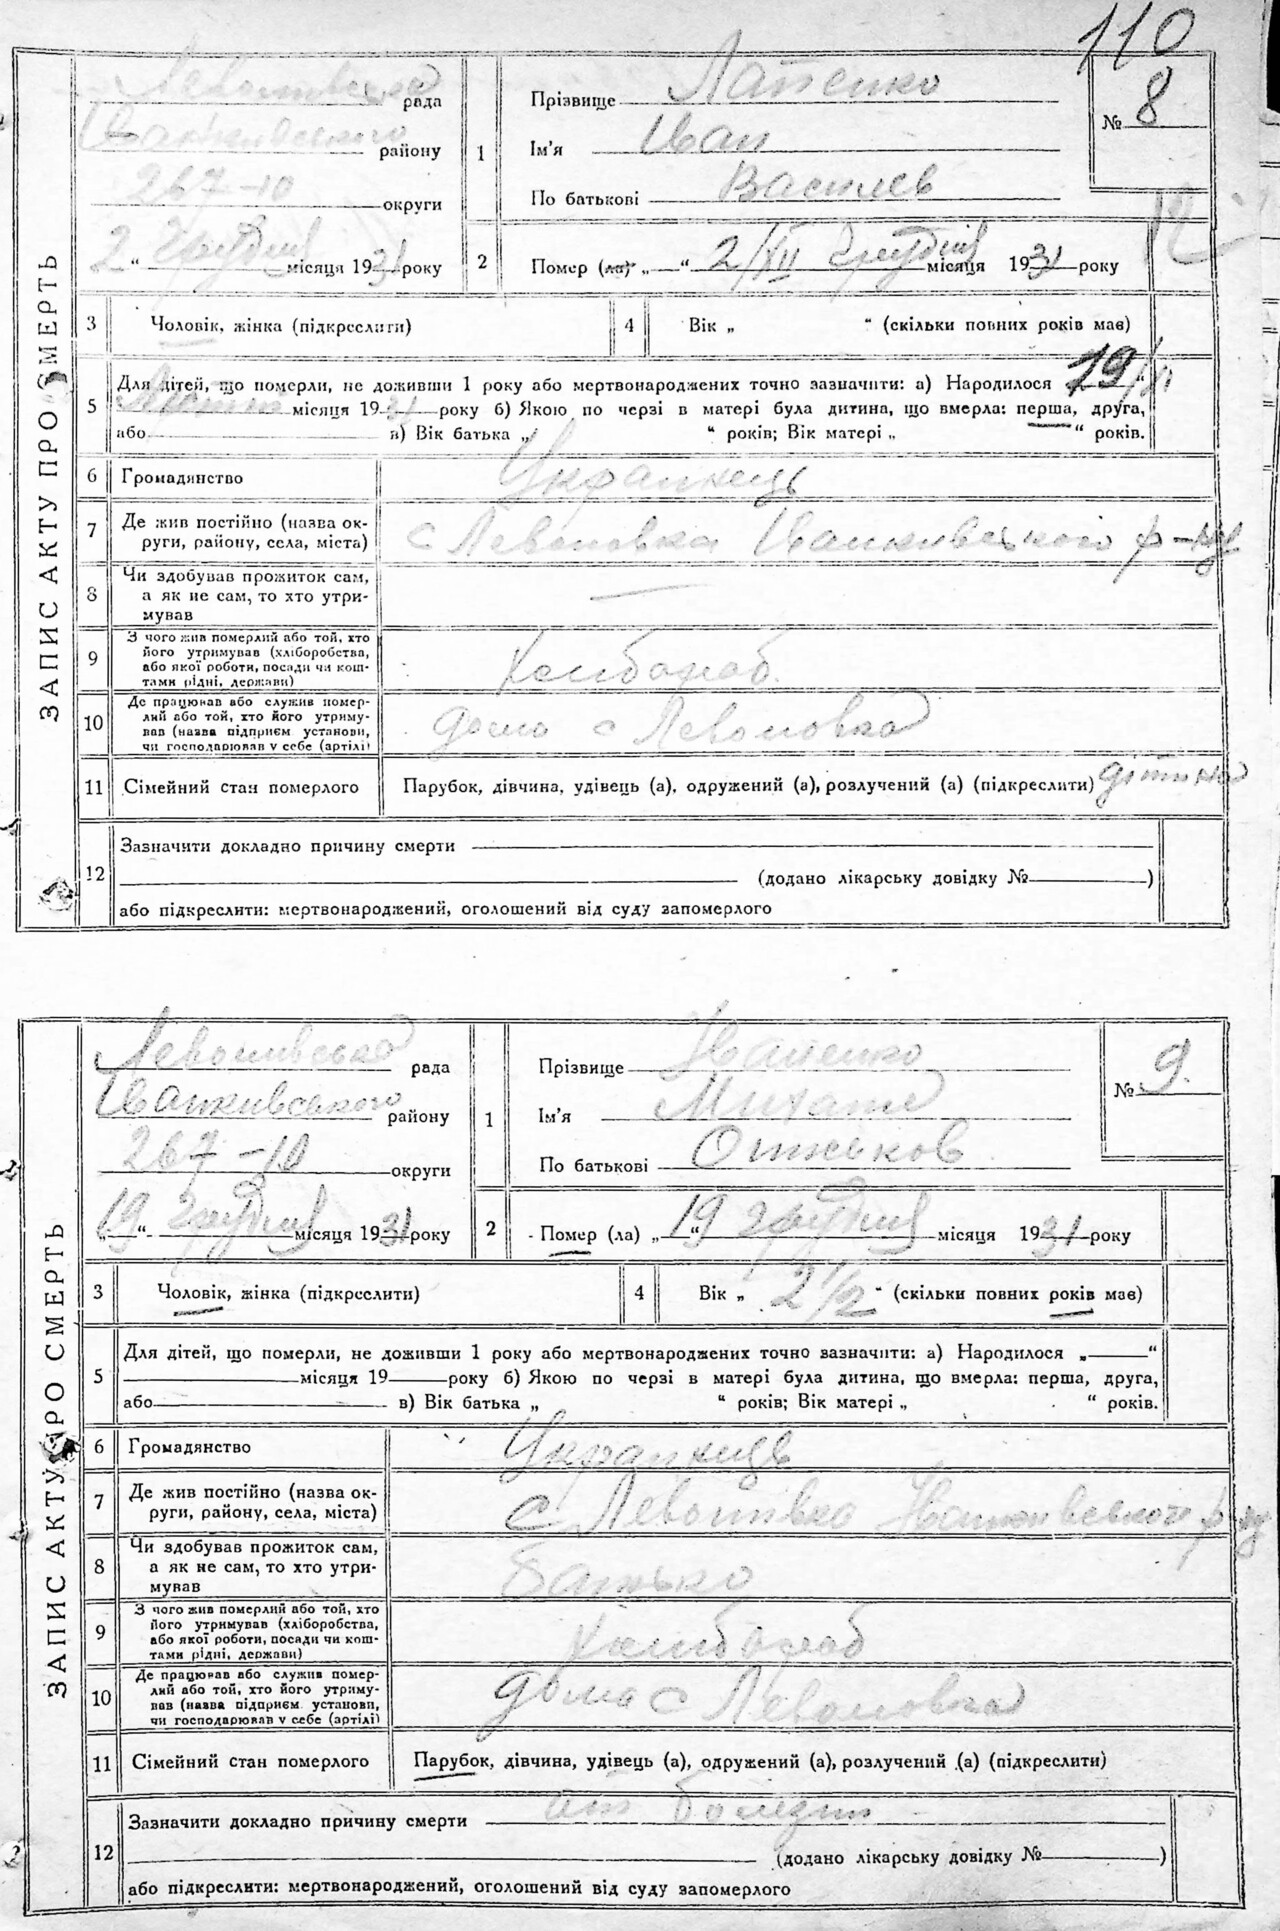 110
ЗАПИС АКТУ ПРО СМЕРТЬ
рада
району
267-10 округи
2 " грудня місяця 1931 року
1
Прізвище Лапенко
Ім'я Іван
По батькові Василев
№ 8
2 Помер (ла) „ " 2/XII грудня місяця 1931 року
3 Чоловік, жінка (підкреслити)
4 Вік „ " (скільки повних років має)
5 Для дітей, що померли, не доживши 1 року або мертвонароджених точно зазначити: а) Народилося 19/
місяця 1931 року б) Якою по черзі в матері була дитина, що вмерла: перша, друга,
або в) Вік батька „ " років; Вік матері „ " років.
6 Громадянство Українець
7 Де жив постійно (назва ок-
руги, району, села, міста) с Левоновка Іванківського р-ну
8 Чи здобував прожиток сам,
а як не сам, то хто утри-
мував —
9 З чого жив померлий або той, хто
його утримував (хліборобства,
або якої роботи, посади чи кош-
тами рідні, держави) Хлібороб
10 Де працював або служив помер-
лий або той, хто його утриму-
вав (назва підприєм установи,
чи господарював у себе (артілі) дома с Левоновка
11 Сімейний стан померлого Парубок, дівчина, удівець (а), одружений (а), розлучений (а) (підкреслити) дітина
12 Зазначити докладно причину смерти
(додано лікарську довідку № )
або підкреслити: мертвонароджений, оголошений від суду запомерлого
ЗАПИС АКТУ ПРО СМЕРТЬ
рада
Іванківського району
267-10 округи
„19" грудня місяця 1931 року
1
Прізвище Іваненко
Ім'я
По батькові
№ 9.
2 Помер (ла) „19" грудня місяця 1931 року
3 Чоловік, жінка (підкреслити)
4 Вік „ 2 1/2 " (скільки повних років має)
5 Для дітей, що померли, не доживши 1 року або мертвонароджених точно зазначити: а) Народилося „ "
місяця 19 року б) Якою по черзі в матері була дитина, що вмерла: перша, друга,
або в) Вік батька „ " років; Вік матері „ " років.
6 Громадянство Українець
7 Де жив постійно (назва ок-
руги, району, села, міста) с Левонівка Іванківського р-ну
8 Чи здобував прожиток сам,
а як не сам, то хто утри-
мував батько
9 З чого жив померлий або той, хто
його утримував (хліборобства,
або якої роботи, посади чи кош-
тами рідні, держави) Хлібороб
10 Де працював або служив помер-
лий або той, хто його утриму-
вав (назва підприєм установи,
чи господарював у себе (артілі) дома с Левоновка
11 Сімейний стан померлого Парубок, дівчина, удівець (а), одружений (а), розлучений (а) (підкреслити)
12 Зазначити докладно причину смерти
(додано лікарську довідку № )
або підкреслити: мертвонароджений, оголошений від суду запомерлого